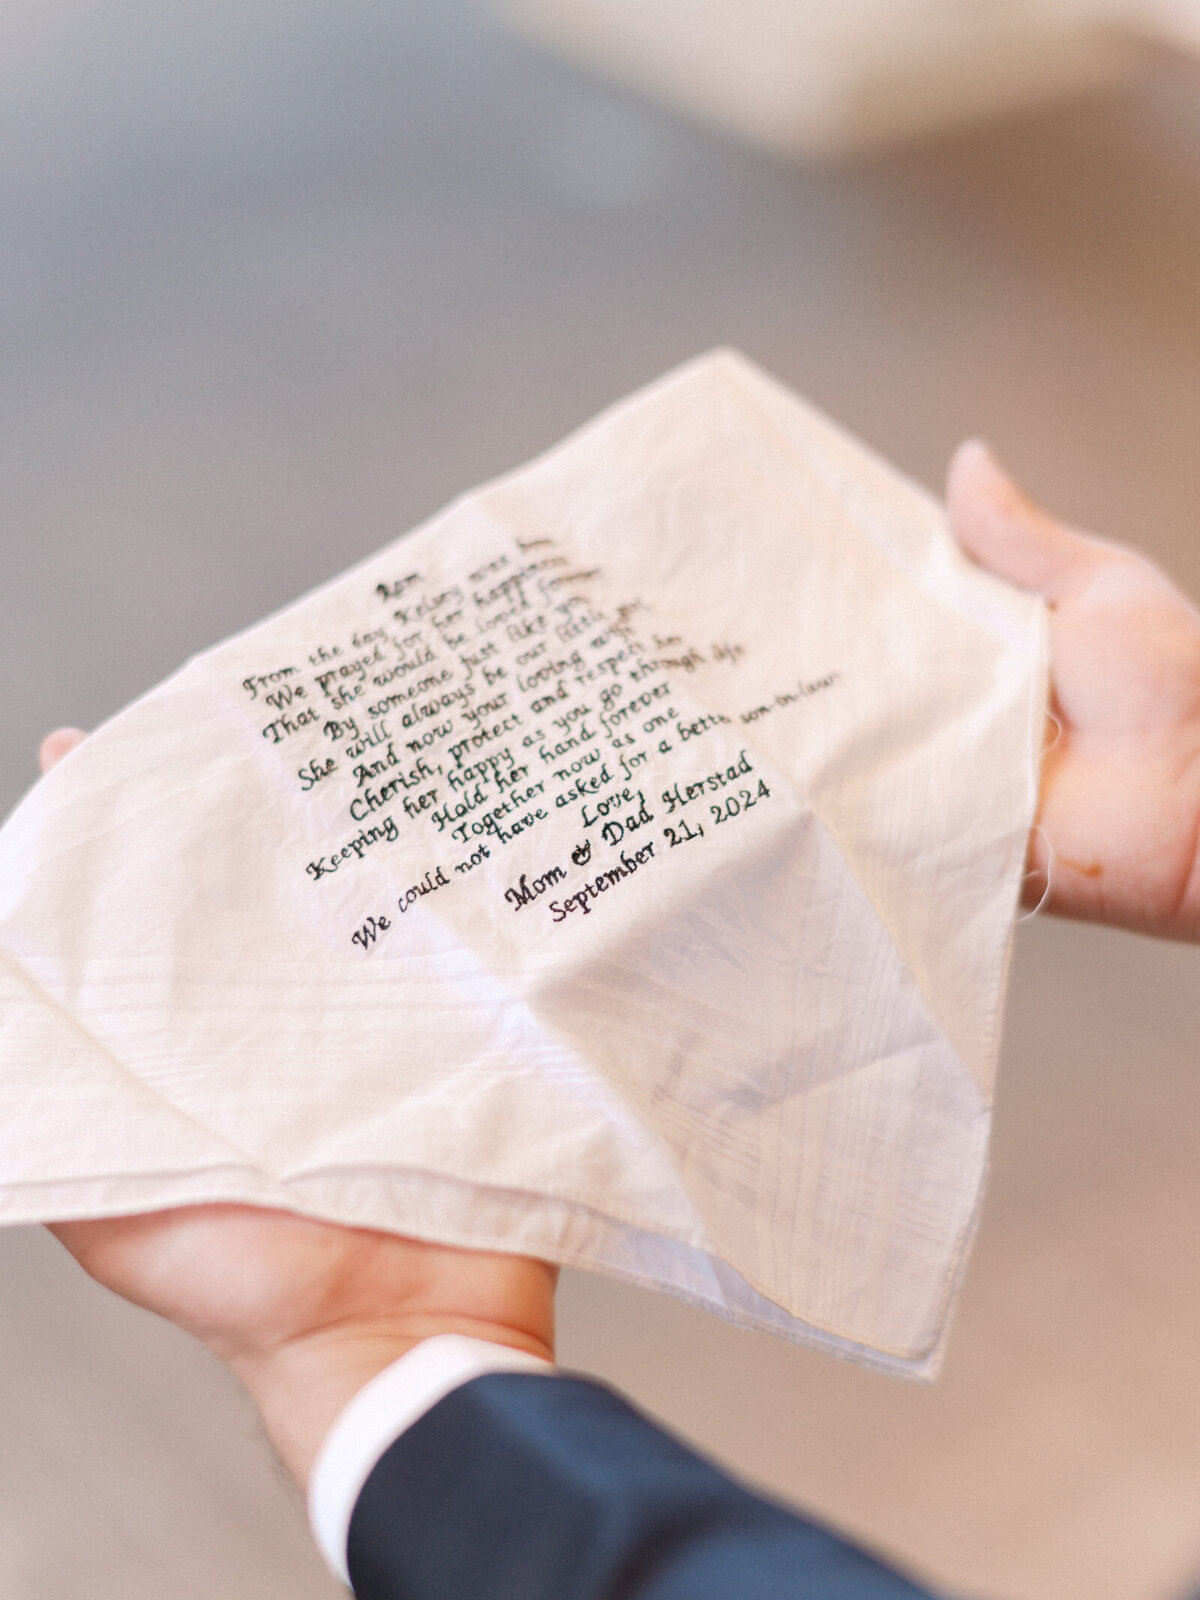 From the day Kelsey was born
We prayed for her happiness
That she would be loved forever
By someone just like you
She will always be our little girl
And now your loving wife
Cherish, protect and respect her
Keeping her happy as you go through life
Hold her hand forever
Together now as one
We could not have asked for a better son-in-law
Love,
Mom & Dad Herstad
September 21, 2024